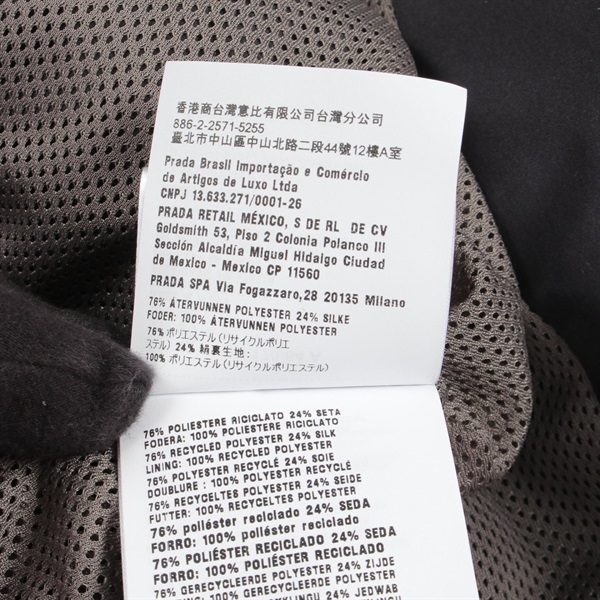 香港商台灣意比有限公司台灣分公司
886-2-2571-5255
臺北市中山區中山北路二段44號12樓A室
Prada Brasil Importação e Comércio
de Artigos de Luxo Ltda
CNPJ 13.633.271/0001-26
PRADA RETAIL MÉXICO, S DE RL DE CV
Goldsmith 53, Piso 2 Colonia Polanco III
Sección Alcaldía Miguel Hidalgo Ciudad
de Mexico - Mexico CP 11560
PRADA SPA Via Fogazzaro,28 20135 Milano
76% ÅTERVUNNEN POLYESTER 24% SILKE
FODER: 100% ÅTERVUNNEN POLYESTER
76% ポリエステル(リサイクルポリエ
ステル) 24% 絹裏生地:
100% ポリエステル(リサイクルポリエステル)
76% POLIESTERE RICICLATO 24% SETA
FODERA: 100% POLIESTERE RICICLATO
76% RECYCLED POLYESTER 24% SILK
LINING: 100% RECYCLED POLYESTER
76% POLYESTER RECYCLÉ 24% SOIE
DOUBLURE : 100% POLYESTER RECYCLÉ
76% RECYCELTES POLYESTER 24% SEIDE
FUTTER: 100% RECYCELTES POLYESTER
76% poliéster reciclado 24% SEDA
FORRO: 100% poliéster reciclado
76% POLIÉSTER RECICLADO 24% SEDA
FORRO: 100% POLIÉSTER RECICLADO
76% GERECYCLEERDE POLYESTER 24% ZIJDE
100% GERECYCLEERDE POLYESTER